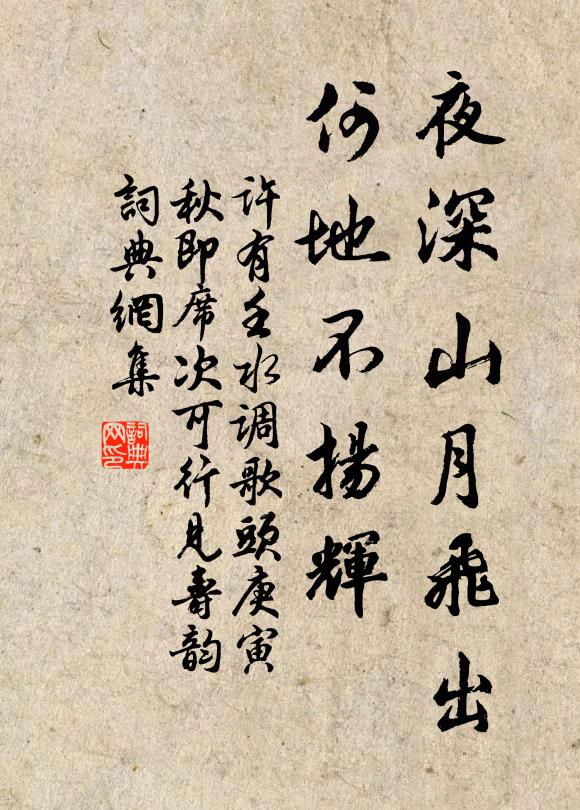 夜深山月飛出
何地不揚輝
許有壬水调歌頭庚寅
秋即席次可行見壽韵
詞典網集
詞典网印